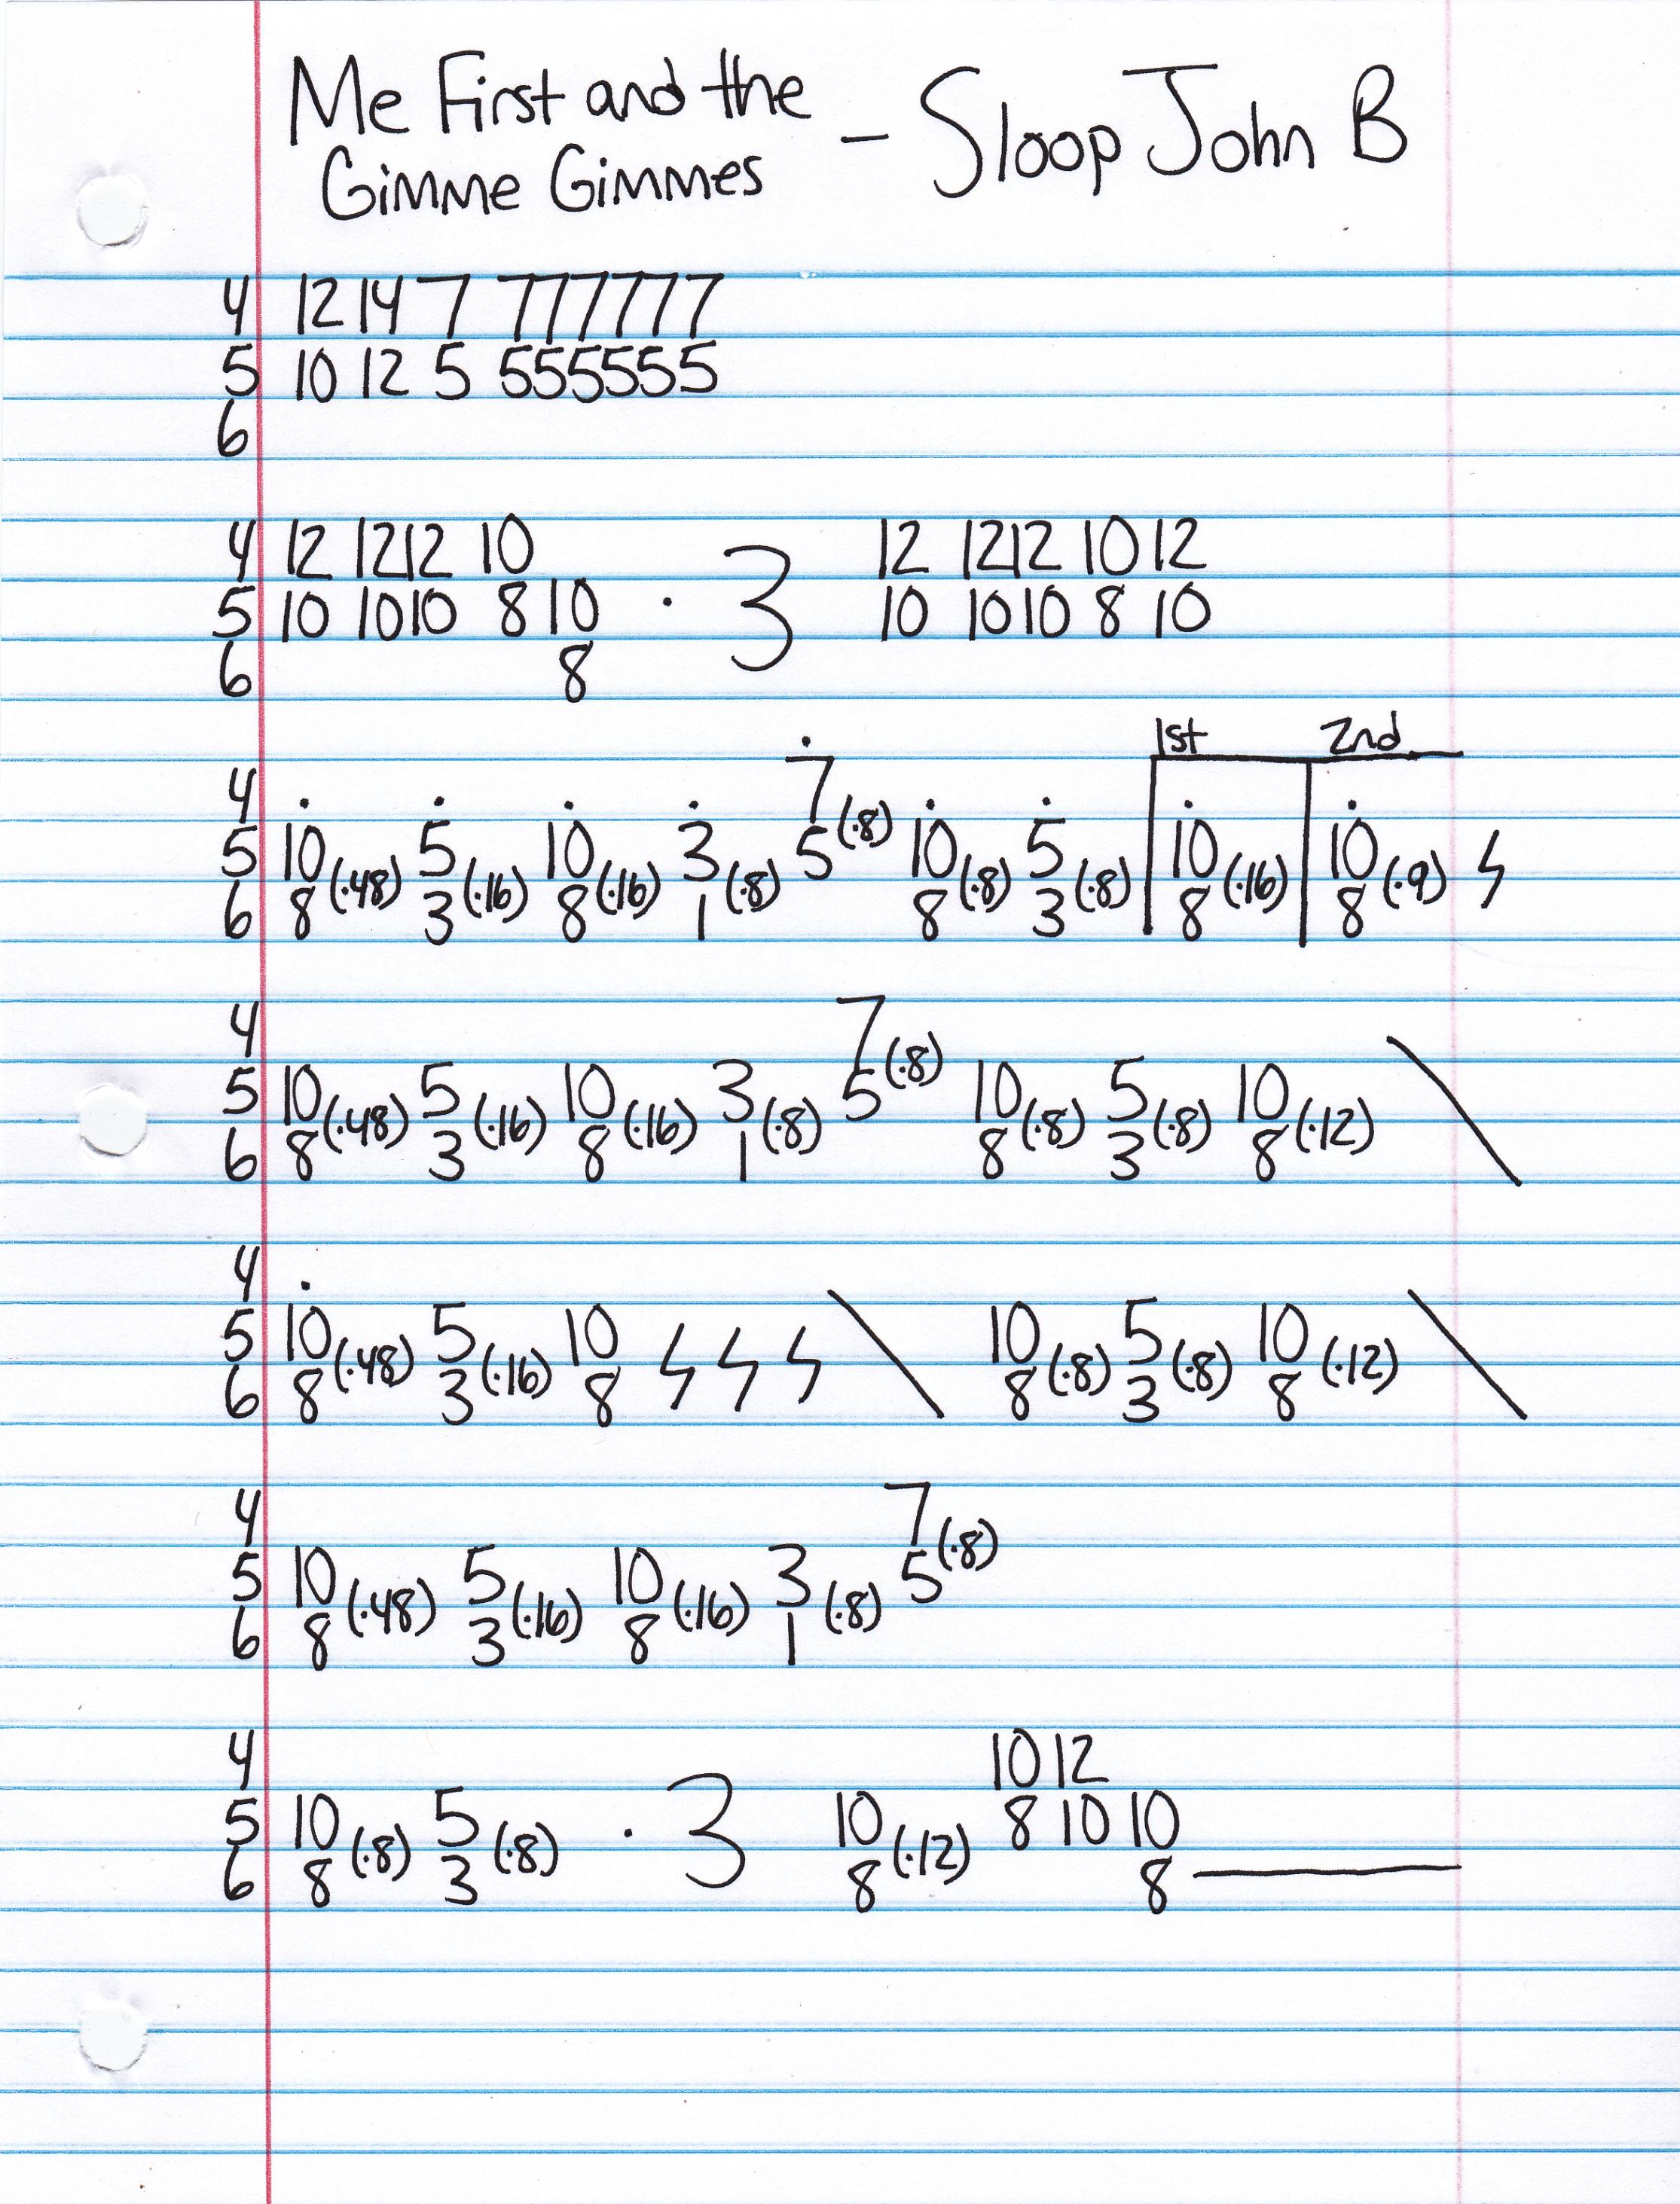 Me First and the
Gimme Gimmes - Sloop John B
4 12 14 7 777777
5 10 12 5 555555
6
4 12 1212 10 12 1212 10 12
5 10 1010 8 10 · 3 10 1010 8 10
6 8
1st 2nd
4 7
5 10 5 10 3 5 (·8) 10 5 10 10
6 8 (·48) 3 (·16) 8 (·16) 1 (·8) 8 (·8) 3 (·8) 8 (·16) 8 (·9)
4 7
5 10 5 10 3 5 (·8) 10 5 10
6 8 (·48) 3 (·16) 8 (·16) 1 (·8) 8 (·8) 3 (·8) 8 (·12) \
4
5 10 5 10 10 5 10
6 8 (·48) 3 (·16) 8 \ 8 (·8) 3 (·8) 8 (·12) \
4 7
5 10 5 10 3 5 (·8)
6 8 (·48) 3 (·16) 8 (·16) 1 (·8)
4 10 12
5 10 5 · 3 10 8 10 10
6 8 (·8) 3 (·8) 8 (·12) 8